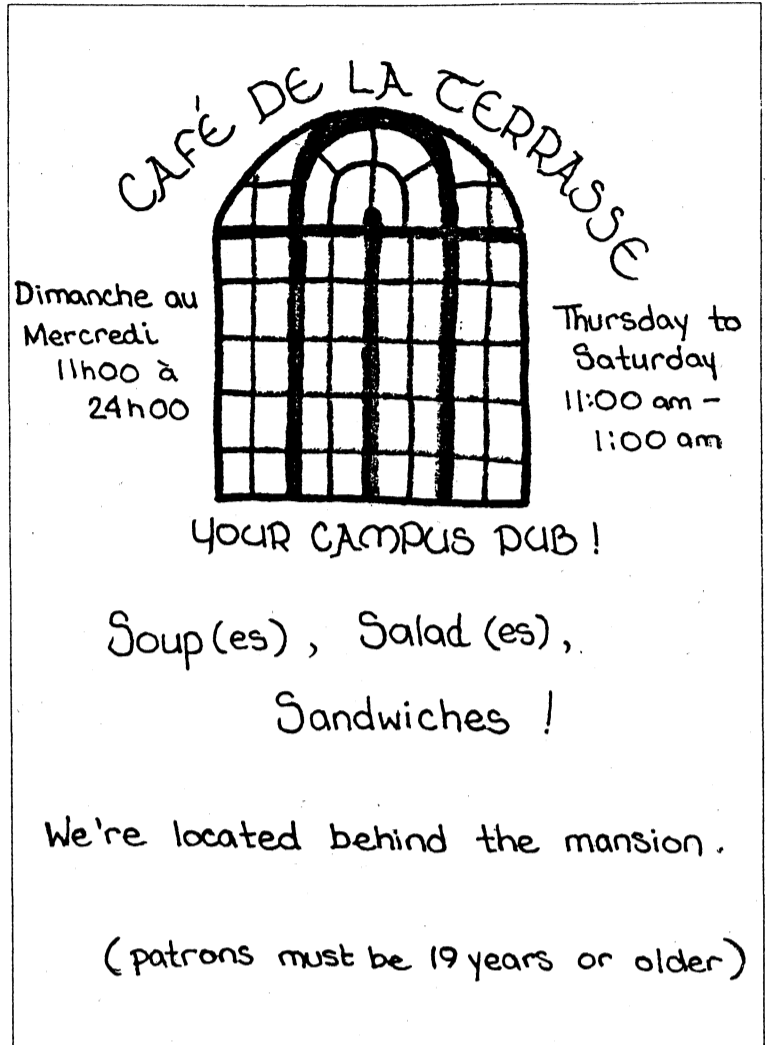 CAFÉ DE LA TERRASSE
Dimanche au
Mercredi
11h00 à
24h00
Thursday to
Saturday
11:00 am -
1:00 am
YOUR CAMPUS PUB!
Soup(es), Salad(es),
Sandwiches!
We're located behind the mansion.
(patrons must be 19 years or older)